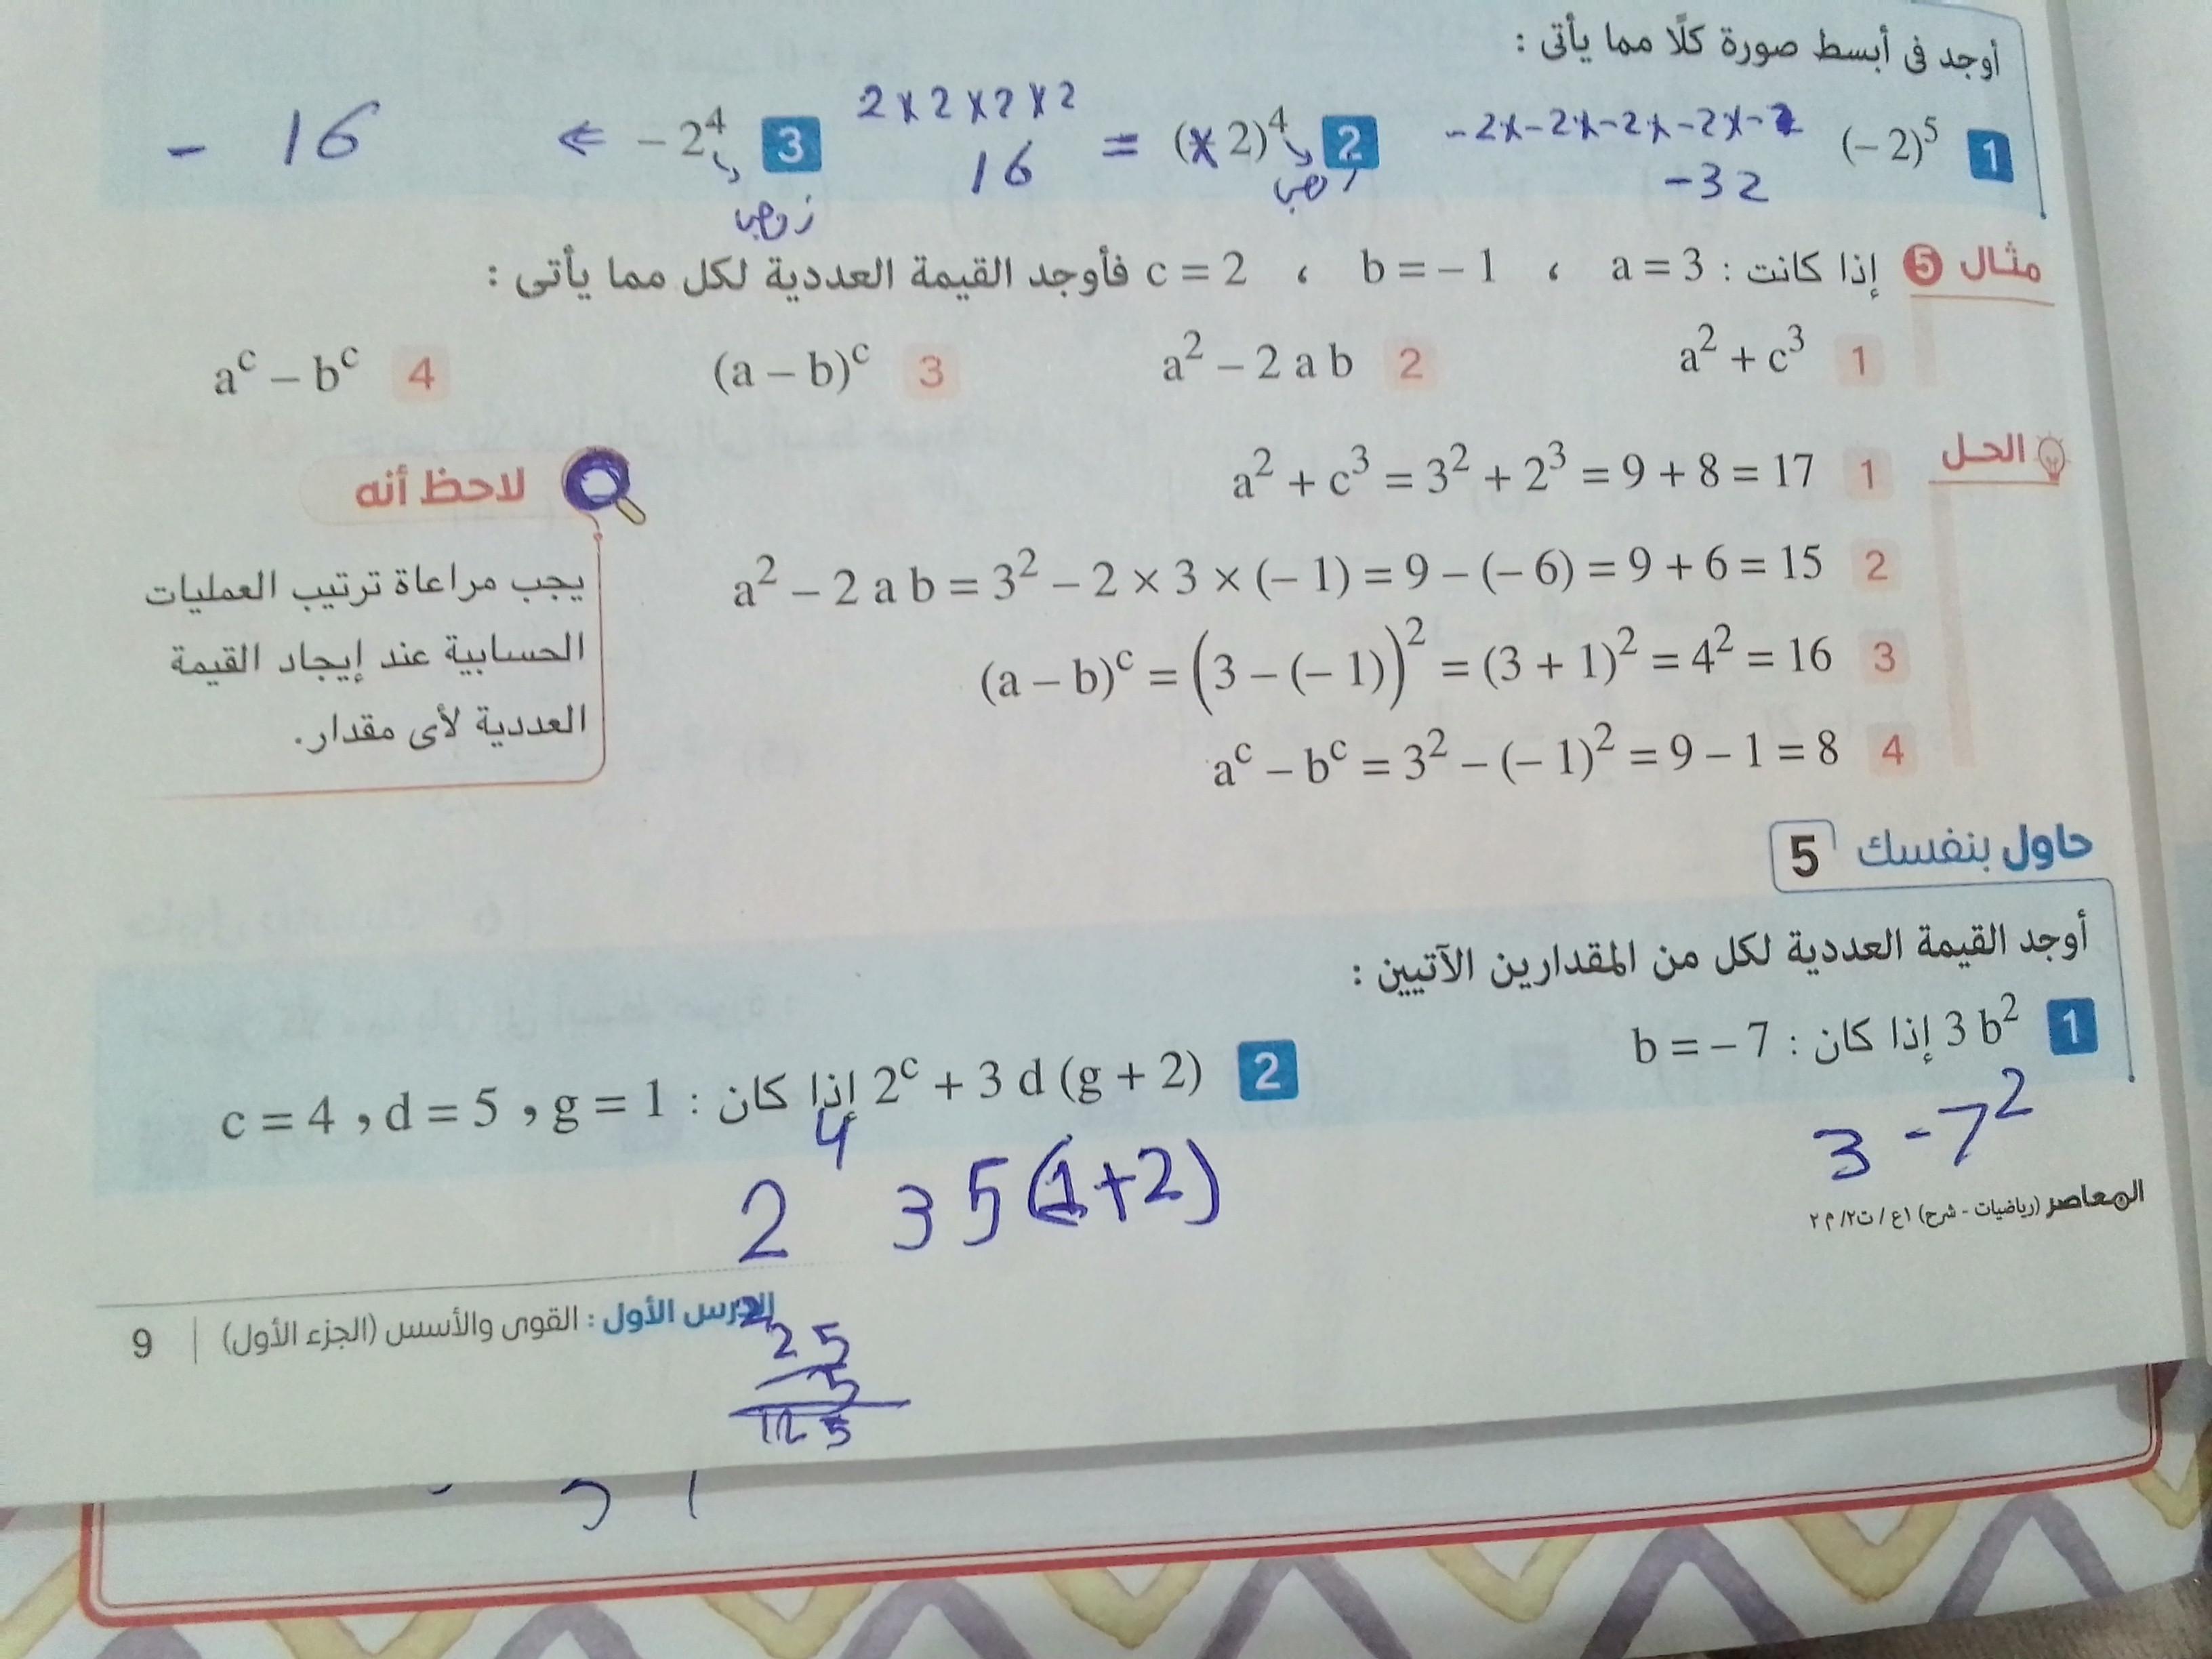 أوجد فى أبسط صورة كلًا مما يأتى :
1 (– 2)⁵ -2×-2×-2×-2×-2
-32
2 (– 2)⁴ = 2×2×2×2
16
3 – 2⁴ ⇐ - 16
زوجى
زوجى
مثال 5 إذا كانت : a = 3 ، b = – 1 ، c = 2 فأوجد القيمة العددية لكل مما يأتى :
1 a² + c³ 2 a² – 2 a b 3 (a – b)ᶜ 4 aᶜ – bᶜ
الحل
1 a² + c³ = 3² + 2³ = 9 + 8 = 17
2 a² – 2 a b = 3² – 2 × 3 × (– 1) = 9 – (– 6) = 9 + 6 = 15
3 (a – b)ᶜ = (3 – (– 1))² = (3 + 1)² = 4² = 16
4 aᶜ – bᶜ = 3² – (– 1)² = 9 – 1 = 8
لاحظ أنه
يجب مراعاة ترتيب العمليات
الحسابية عند إيجاد القيمة
العددية لأى مقدار.
حاول بنفسك 5
أوجد القيمة العددية لكل من المقدارين الآتيين :
1 3 b² إذا كان : b = – 7
2 2ᶜ + 3 d (g + 2) إذا كان : c = 4 , d = 5 , g = 1
3 -7²
2⁴ 3 5 (1+2)
المعاصر (رياضيات - شرح) ١ع / ت٢/ م ٢
الدرس الأول : القوى والأسس (الجزء الأول) | 9
2
25
5
125